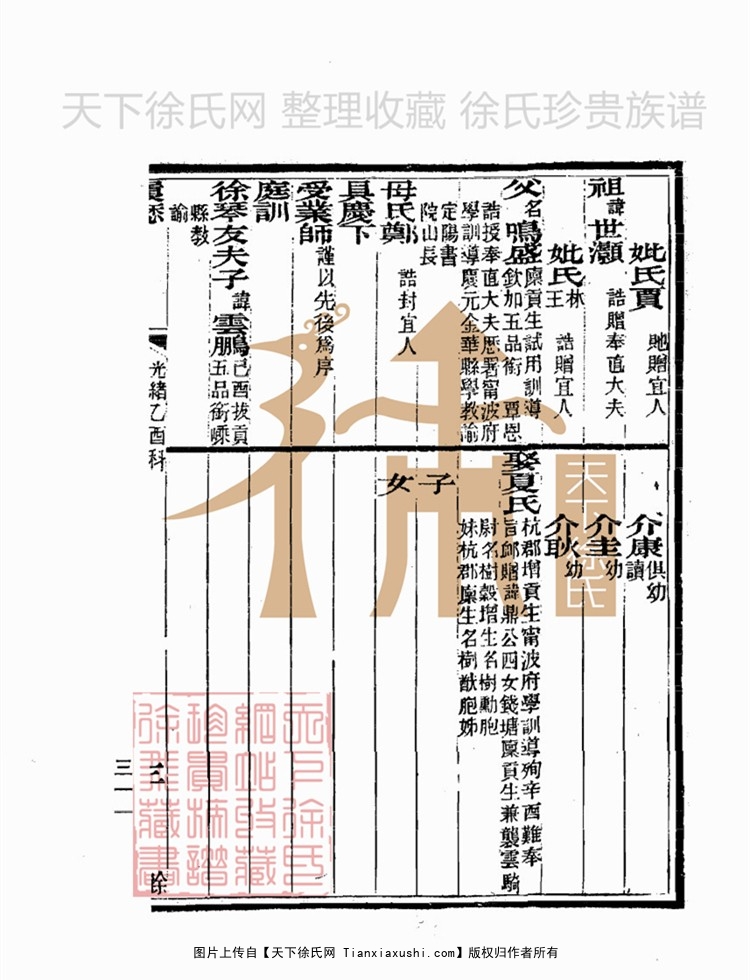 天下徐氏网 整理收藏 徐氏珍贵族谱
妣氏賈 貤贈宜人
祖諱世灝 誥贈奉直大夫
妣氏林王 誥贈宜人
父名鳴盛廩貢生試用訓導欽加五品銜 覃恩
誥授奉直大夫歷署甯波府學訓導慶元金華縣學教諭
定陽書院山長
母氏鄭 誥封宜人
具慶下
受業師謹以先後爲序
庭訓
徐琴友夫子諱雲鵬己酉拔貢五品銜嵊
縣教諭
光緒乙酉科
介康俱幼讀
介圭幼
介耿幼
娶夏氏杭郡增貢生甯波府學訓導殉辛酉難奉
旨卹贈諱鼎公四女錢塘廩貢生兼襲雲騎
尉名樹穀增生名樹勳胞
妹杭郡廩生名樹猷胞姊
子
女
三
徐
三一一
天下徐氏
天下徐氏
網站收藏
珍貴族譜
徐業藏書
图片上传自【天下徐氏网 Tianxiaxushi.com】版权归作者所有